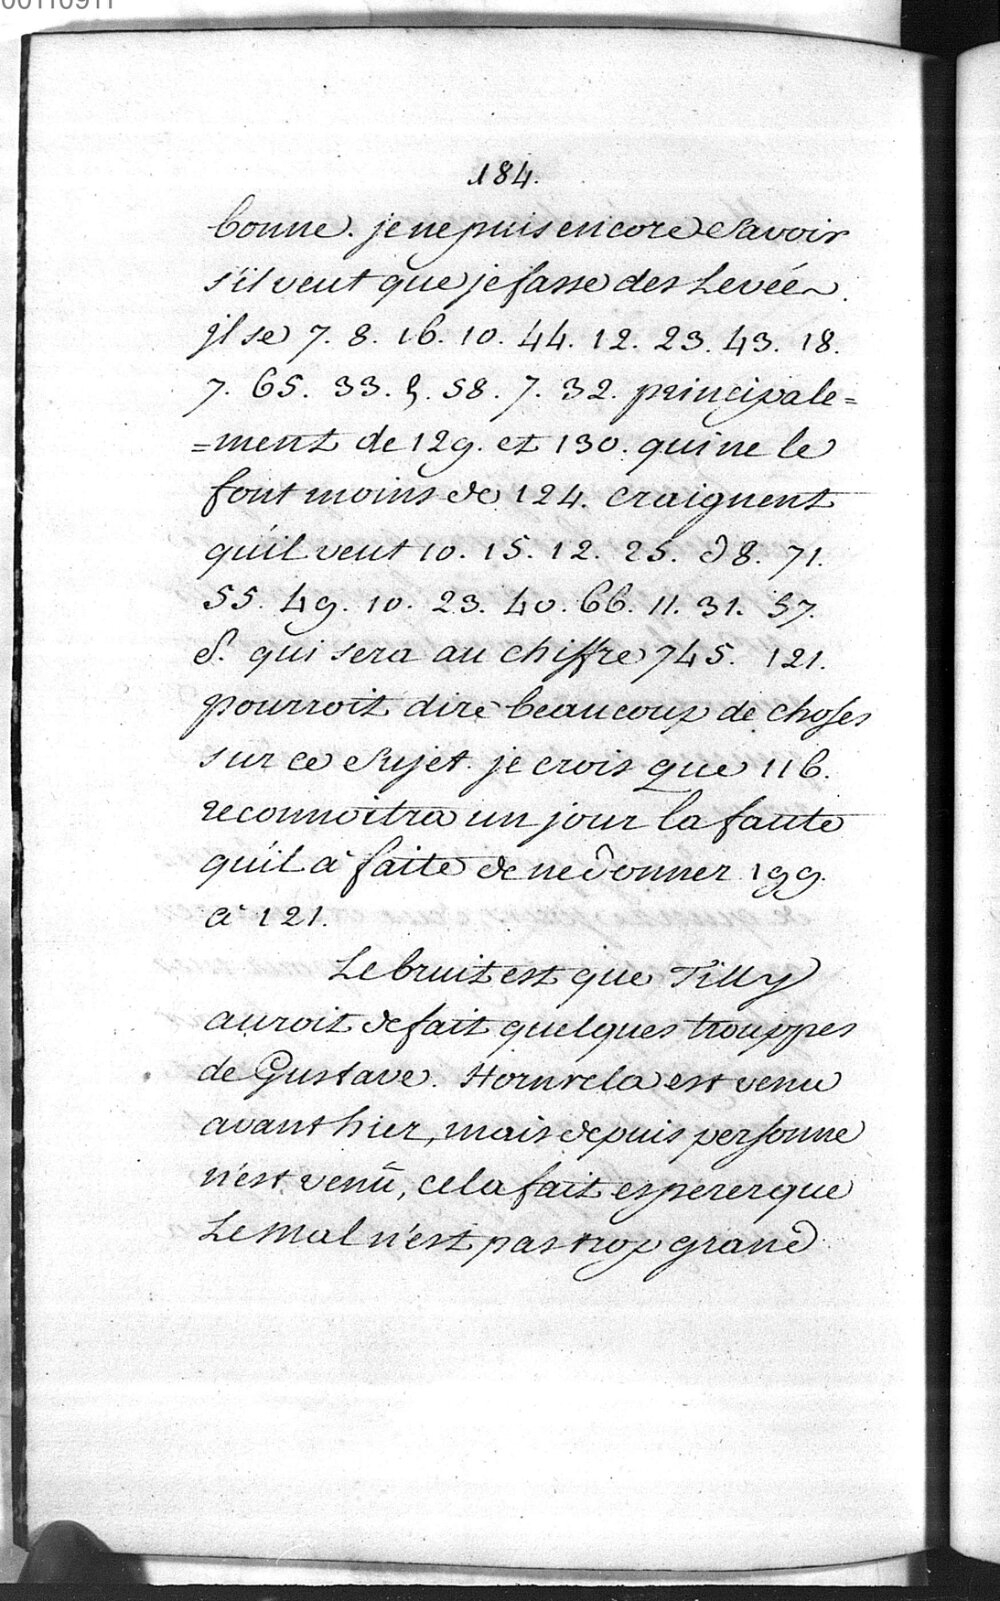 184.
bonne. je ne puis encore Savoir
s'il veut que je fasse des Levées.
jl se 7. 8. 16. 10. 44. 12. 23. 43. 18.
7. 65. 33. 58. 7. 32. principale=
=ment de 129. et 130. qui ne le
font moins de 124. craignent
qu'il veut 10. 15. 12. 25. 8. 71.
55. 49. 10. 23. 40. 66. 11. 31. 57.
S. qui sera au chiffre 745. 121.
pourroit dire beaucoup de choses
sur ce Sujet. je crois que 116.
reconnoitra un jour la faute
qu'il à faite de ne donner 199.
à 121.
Le bruit est que Tilly
auroit defait quelques trouppes
de Gustave. est venu
avant hier, mais depuis personne
n'est venû, cela fait esperer que
Le Mal n'est pas trop grand